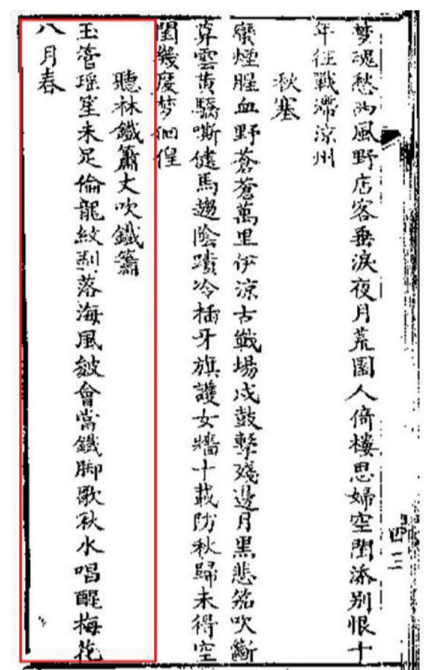 梦魂愁西風野店客垂淚夜月荒園人倚樓思婦空閨添別恨十
年征戰滯涼州
秋塞
蠻煙腥血野蒼蒼萬里伊涼古戰場戍鼓擊殘邊月黑悲笳吹斷
雲黃驕嘶健馬趨陰磧冷插牙旗護女牆十載防秋歸未得空
閨幾度梦徊徨
聽林鐵簫丈吹鐵簫
玉管瑶笙未足倫龍紋剥落海風皴會當鐵脚歌秋水唱醒梅花
八月春
四三